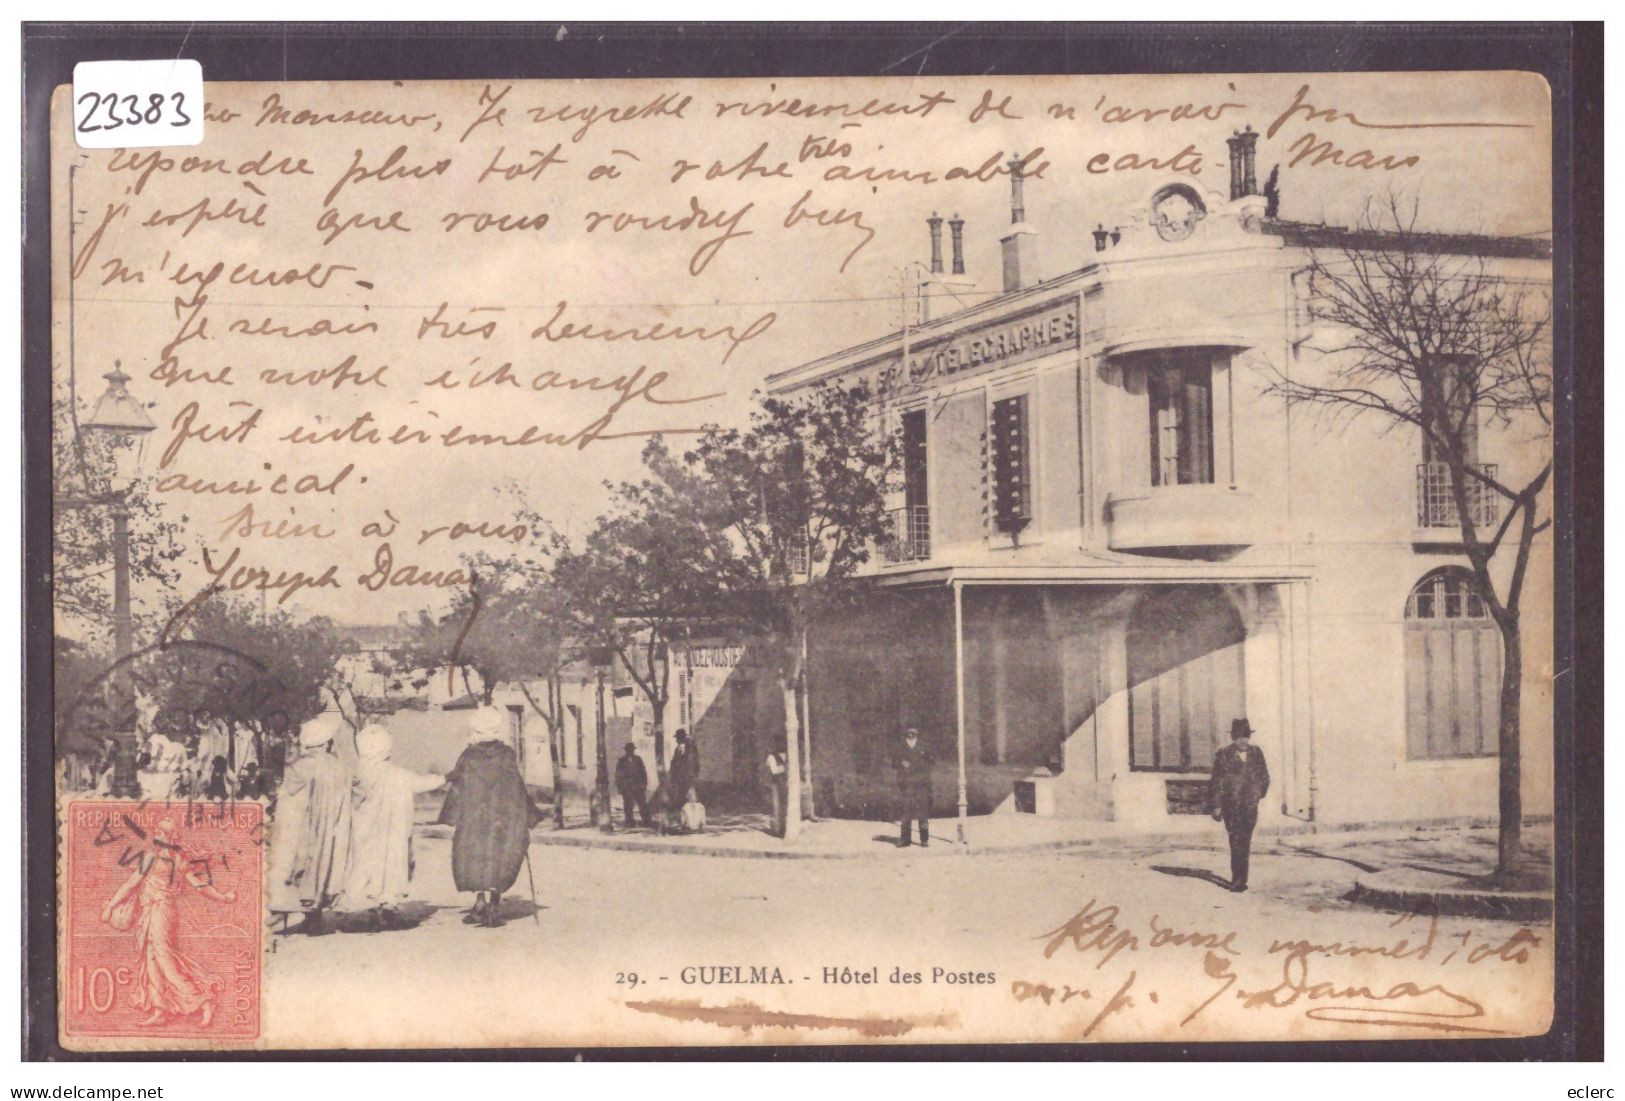 23383
Monsieur, Je regrette vivement de n'avoir pu
repondre plus tôt à votre très aimable carte - Mais
j'espère que vous voudrez bien
m'excuser -
Je serais très heureux
que notre échange
fût entièrement
amical.
Bien à vous
Joseph Danan
TELEGRAPHES
AU RENDEZ-VOUS DE
REPUBLIQUE FRANÇAISE
10c
POSTES
GUELMA
29. - GUELMA. - Hôtel des Postes
Réponse immédiate
J. Danan
eclerc